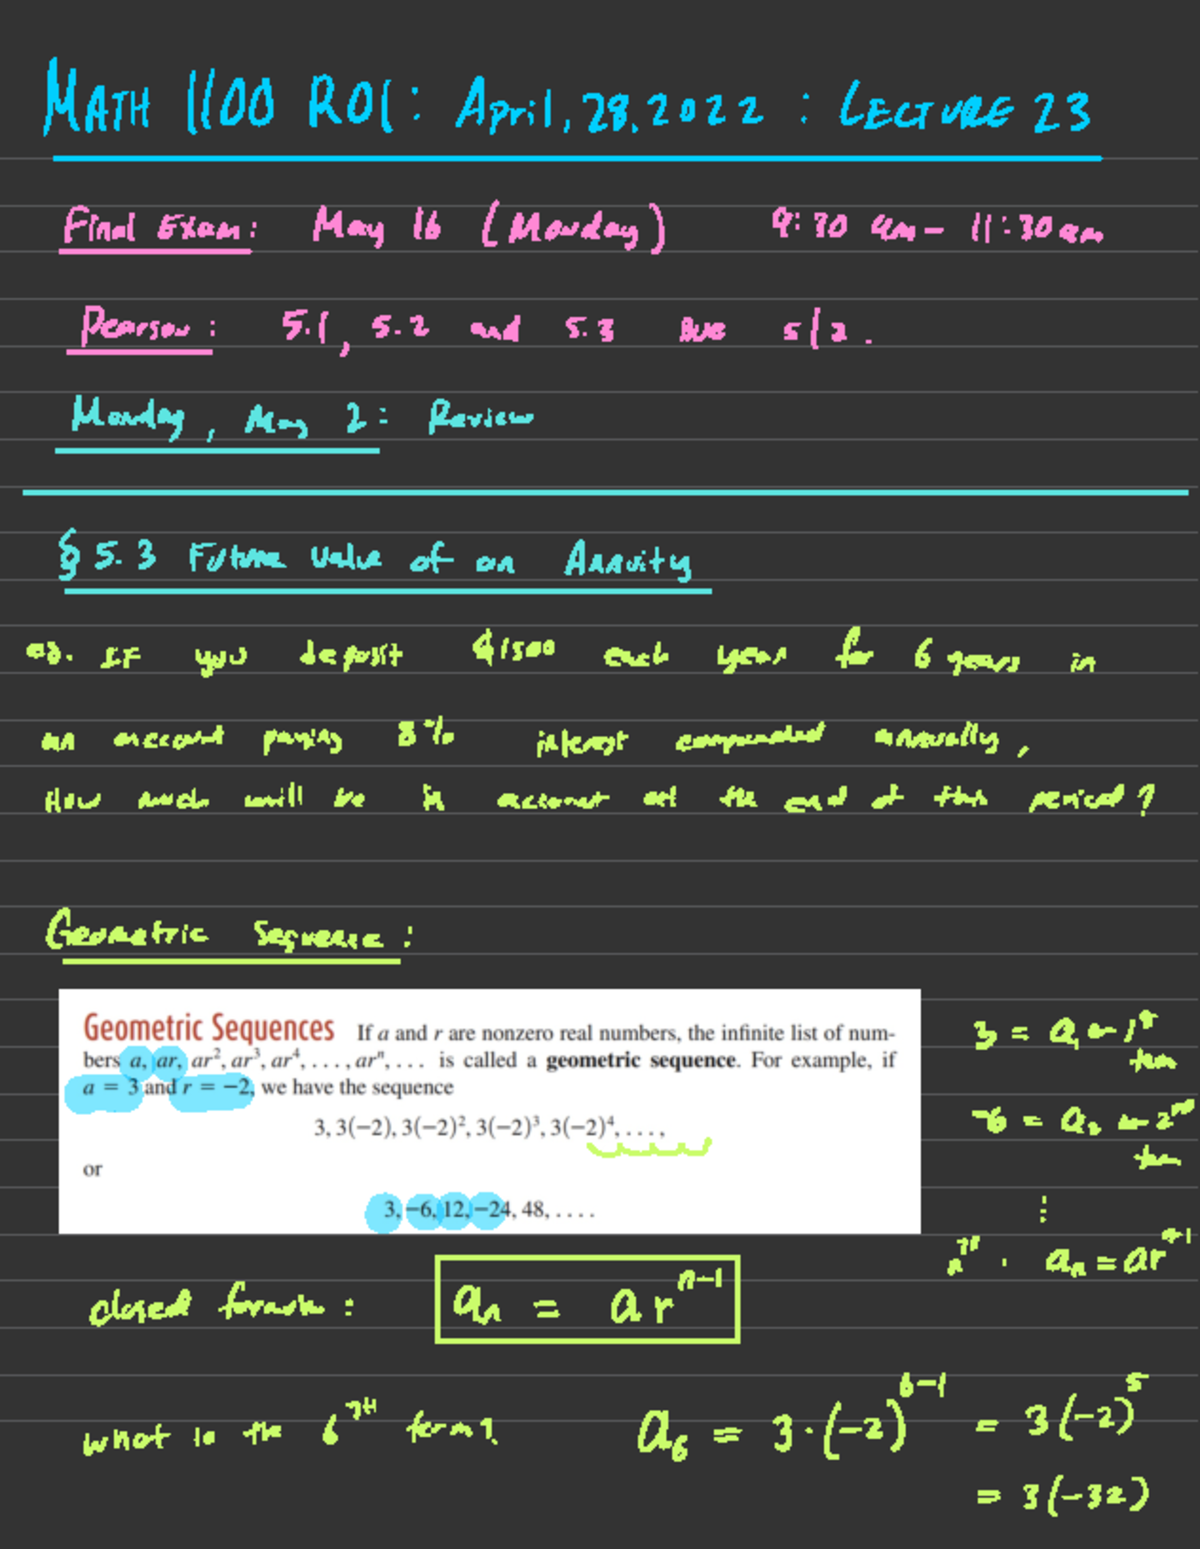 MATH 1100 R01: April, 28, 2022 : LECTURE 23
Final Exam: May 16 (Monday) 9:30 am - 11:30 am
Pearson: 5.1, 5.2 and 5.3 Due 5/2.
Monday, May 2: Review
§ 5.3 Future Value of an Annuity
eg. If you deposit $1500 each year for 6 years in
an account paying 8% interest compounded annually,
How much will be in account at the end of this period?
Geometric Sequence:
Geometric Sequences If a and r are nonzero real numbers, the infinite list of num-
bers a, ar, ar², ar³, ar⁴, . . . , arⁿ, . . . is called a geometric sequence. For example, if
a = 3 and r = −2, we have the sequence
3, 3(−2), 3(−2)², 3(−2)³, 3(−2)⁴, . . . ,
or
3, −6, 12, −24, 48, . . . .
3 = a₁ ← 1st
term
-6 = a₂ ← 2nd
term
⋮
nth : aₙ = arⁿ⁻¹
closed formula : aₙ = a rⁿ⁻¹
what is the 6th term? a₆ = 3·(-2)⁶⁻¹ = 3(-2)⁵
= 3(-32)